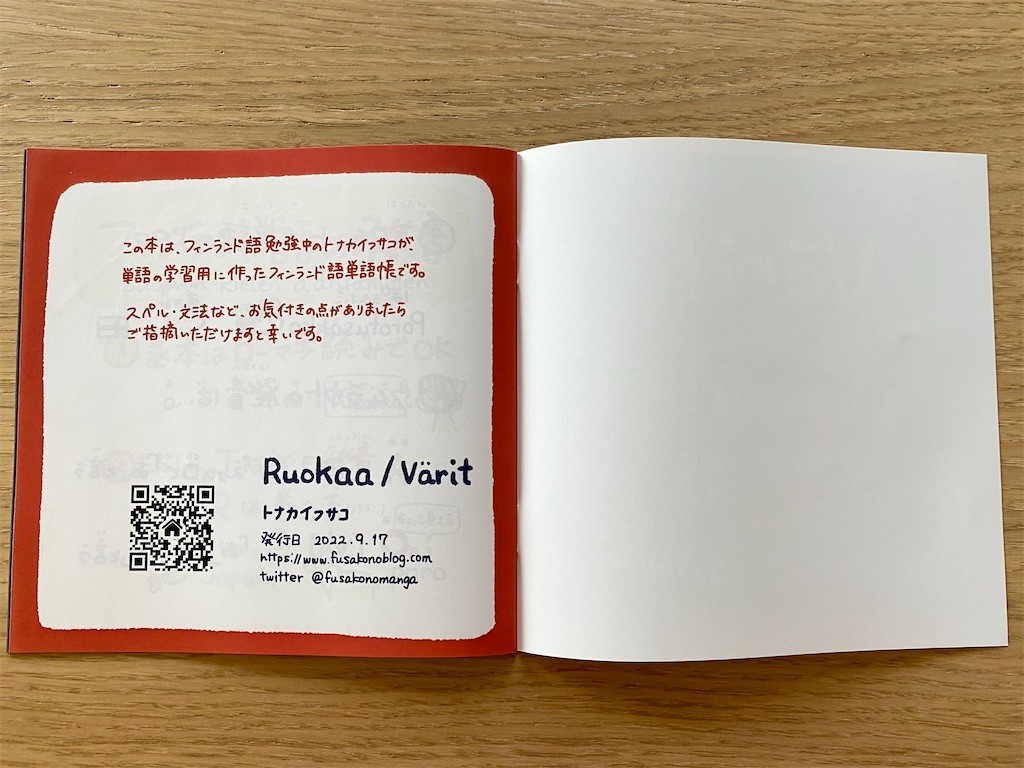 この本は、フィンランド語勉強中のトナカイフサコが、
単語の学習用に作ったフィンランド語単語帳です。
スペル・文法など、お気付きの点がありましたら
ご指摘いただけますと幸いです。
Ruokaa / Värit
トナカイフサコ
発行日 2022.9.17
https://www.fusakonoblog.com
twitter @fusakonomanga